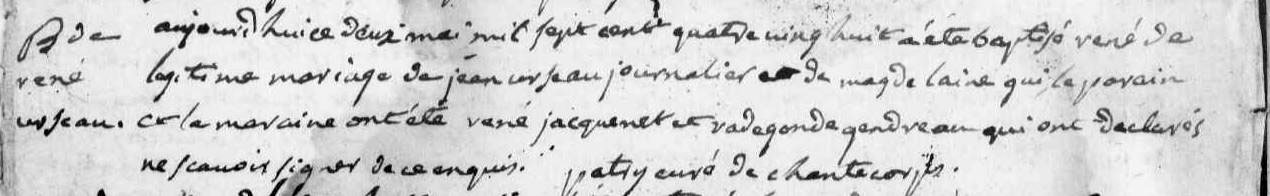 B de aujourdhuice deuzi mai mil sept cent quatre vingt huit a été baptisé rené de
rené legitime mariage de jean urseau journalier et de magdelaine gui le parain
urseau. et la maraine ont été rené jacquenet et radegonde gendreau qui ont declarés
ne scavoir signer de ce enquis. patry curé de chantecorps.